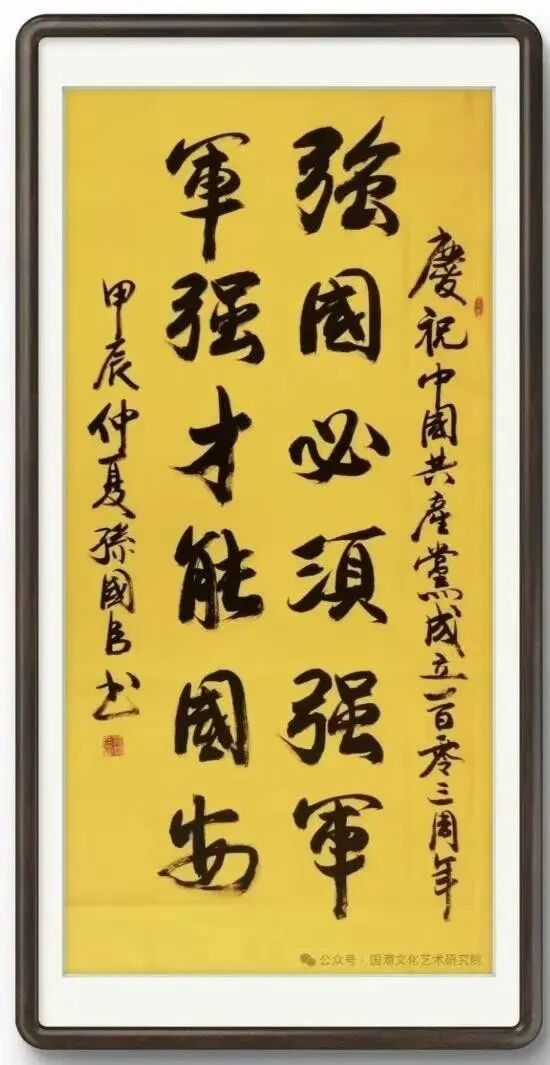 慶祝中國共産黨成立一百零三周年
強國必須强軍
軍强才能國安
甲辰仲夏孫國书
公众号 · 国潮文化艺术研究院